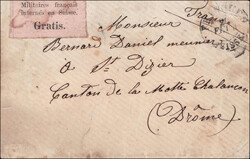 Militaires français
internés en Suisse.
Gratis.
Monsieur
Bernard Daniel meunier
à St Dizier
Canton de la Motte Chalancon
(Drôme)